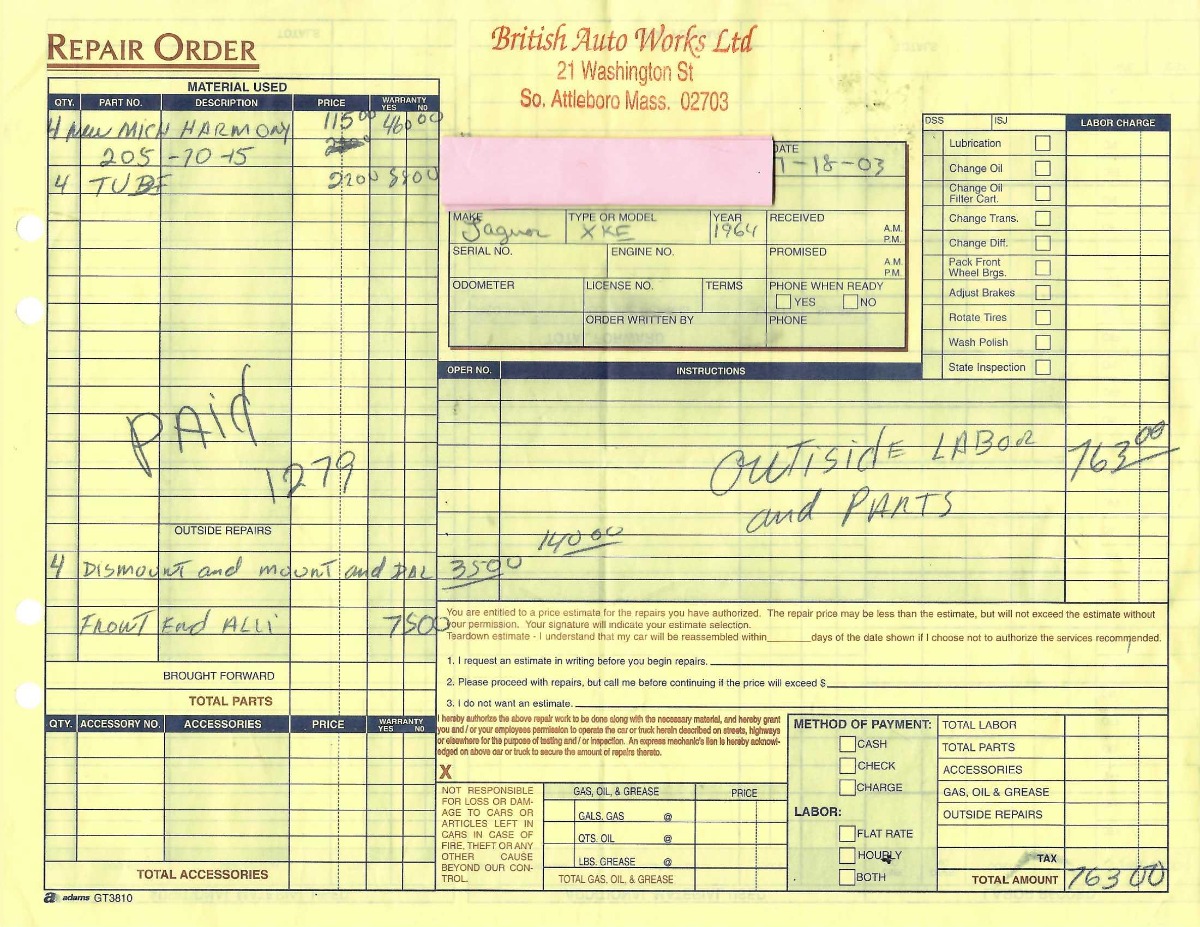 REPAIR ORDER
British Auto Works Ltd
21 Washington St
So. Attleboro Mass. 02703
MATERIAL USED
QTY. PART NO. DESCRIPTION PRICE WARRANTY YES NO
4 New MICH HARMONY 115 00 460 00
205 -70 -15
4 TUBE 22 00 88 00
DATE
-18-03
MAKE TYPE OR MODEL YEAR RECEIVED
Jaguar XKE 1964 A.M.
P.M.
SERIAL NO. ENGINE NO. PROMISED
A.M.
P.M.
ODOMETER LICENSE NO. TERMS PHONE WHEN READY
YES NO
ORDER WRITTEN BY PHONE
DSS ISJ LABOR CHARGE
Lubrication
Change Oil
Change Oil
Filter Cart.
Change Trans.
Change Diff.
Pack Front
Wheel Brgs.
Adjust Brakes
Rotate Tires
Wash Polish
State Inspection
OPER NO. INSTRUCTIONS
PAID
1279
OUTISIDE LABOR 763 00
and PARTS
OUTSIDE REPAIRS
140 00
4 DISMOUNT and mount and BAL 35 00
FRONT End ALLI 75 00
BROUGHT FORWARD
TOTAL PARTS
You are entitled to a price estimate for the repairs you have authorized. The repair price may be less than the estimate, but will not exceed the estimate without
your permission. Your signature will indicate your estimate selection.
Teardown estimate - I understand that my car will be reassembled within______days of the date shown if I choose not to authorize the services recommended.
1. I request an estimate in writing before you begin repairs.
2. Please proceed with repairs, but call me before continuing if the price will exceed $
3. I do not want an estimate.
QTY. ACCESSORY NO. ACCESSORIES PRICE WARRANTY YES NO
TOTAL ACCESSORIES
I hereby authorize the above repair work to be done along with the necessary material, and hereby grant
you and / or your employees permission to operate the car or truck herein described on streets, highways
or elsewhere for the purpose of testing and / or inspection. An express mechanic's lien is hereby acknowl-
edged on above car or truck to secure the amount of repairs thereto.
X
NOT RESPONSIBLE
FOR LOSS OR DAM-
AGE TO CARS OR
ARTICLES LEFT IN
CARS IN CASE OF
FIRE, THEFT OR ANY
OTHER CAUSE
BEYOND OUR CON-
TROL.
GAS, OIL, & GREASE PRICE
GALS. GAS @
QTS. OIL @
LBS. GREASE @
TOTAL GAS, OIL, & GREASE
METHOD OF PAYMENT:
CASH
CHECK
CHARGE
LABOR:
FLAT RATE
HOURLY
BOTH
TOTAL LABOR
TOTAL PARTS
ACCESSORIES
GAS, OIL & GREASE
OUTSIDE REPAIRS
TAX
TOTAL AMOUNT 763 00
a adams GT3810